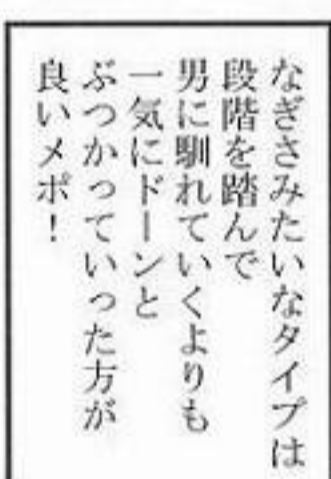 なぎさみたいなタイプは
段階を踏んで
男に馴れていくよりも
一気にドーンと
ぶつかっていった方が
良いメポ！